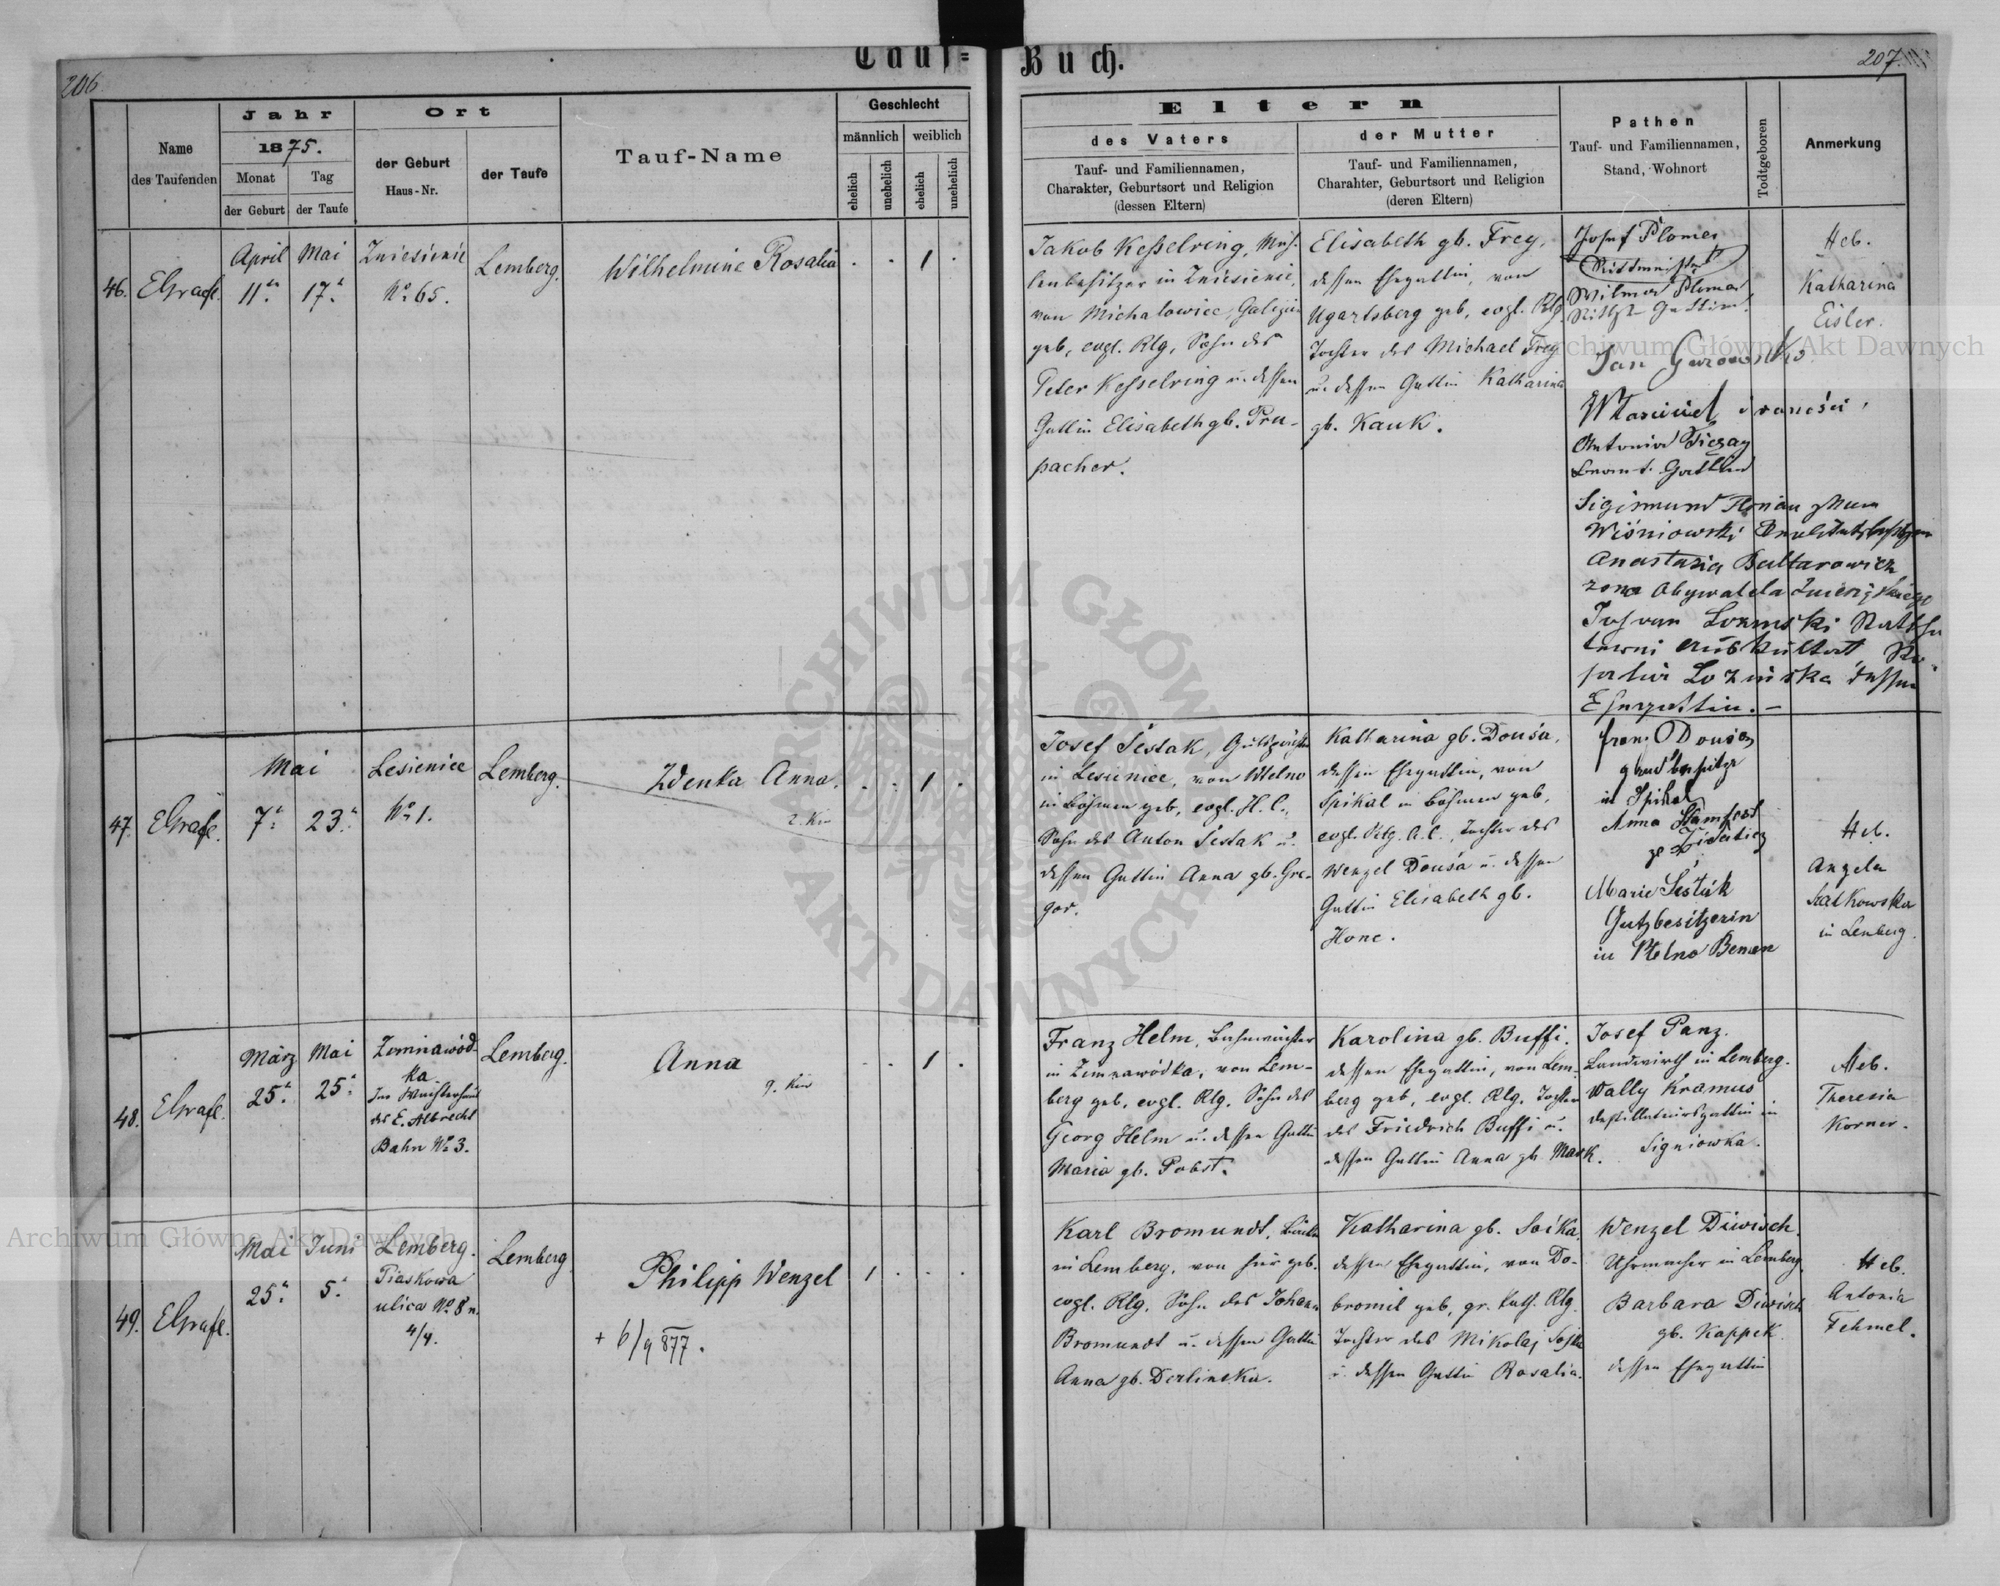 206
Tauf-Buch.
207.
Name
des Taufenden
Jahr
1875.
Monat
der Geburt
Tag
der Taufe
Ort
der Geburt
Haus-Nr.
der Taufe
Tauf-Name
Geschlecht
männlich
weiblich
ehelich
unehelich
ehelich
unehelich
Eltern
des Vaters
Tauf- und Familiennamen,
Charakter, Geburtsort und Religion
(dessen Eltern)
der Mutter
Tauf- und Familiennamen,
Charahter, Geburtsort und Religion
(deren Eltern)
Pathen
Tauf- und Familiennamen,
Stand, Wohnort
Todtgeboren
Anmerkung
46.
EGrafl.
April
11.
Mai
17.
Zniesienie
No 65.
Lemberg.
Wilhelmine Rosalia
. . 1 .
Jakob Kesselring, Müh-
lenbesitzer in Zniesienie,
von Michalowice, Galizien
geb, evgl. Rlg, Sohn des
Peter Kesselring u. dessen
Gattin Elisabeth gb. Pru-
pacher.
Elisabeth gb. Frey,
dessen Ehegattin, von
Ugartsberg geb, evgl. Rlg.
Tochter des Michael Frey
u. dessen Gattin Katharina
gb. Kauk.
Josef Plomer
Rittmeister
Gattin
Jan
Antonia
Gattin
Sigismund Florian
Wiśniowski
Anastazia Baltarowicz
żona obywatela
Auskultant
Łozinska dessen
Ehegattin.-
Heb.
Katharina
Eisler.
47.
EGrafl.
Mai
7.
23.
Lesienice
No 1.
Lemberg.
Zdenka Anna.
. . 1 .
Josef Šestak, Gutspächter
in Lesienice, von Wtelno
in Böhmen geb, evgl. H.C.,
Sohn des Anton Šestak u.
dessen Gattin Anna gb. Gre-
gor.
Katharina gb. Douša,
dessen Ehegattin, von
Spikal in Böhmen geb,
evgl. Rlg. A.C., Tochter des
Wenzel Douša u. dessen
Gattin Elisabeth gb.
Honc.
in Spikal
Anna
Marie Šesták
Gutzbesitzerin
in Ptelno Bemen
Heb.
Angela
in Lemberg.
48.
EGrafl.
März
25.
Mai
25.
Zimnawód-
ka
Im Wächterhaus
der E. Albrecht
Bahn No 3.
Lemberg.
Anna
. . 1 .
Franz Helm, Bahnwächter
in Zimnawódka, von Lem-
berg geb, evgl. Rlg. Sohn des
Georg Helm u. dessen Gattin
Maria gb. Pobst.
Karolina gb. Buffi.
dessen Ehegattin, von Lem-
berg geb, evgl. Rlg. Tochter
des Friedrich Buffi u.
dessen Gattin Anna gb. Mauk.
Josef Panz.
Landwirth in Lemberg.
Wally Kramus
in
Signiowka.
Heb.
Theresia
Korner.
49.
EGrafl.
Mai
25.
Juni
5.
Lemberg.
Piaskowa
ulica No 8 n.
4/4.
Lemberg
Philipp Wenzel
+ 6/9 877.
1 . . .
Karl Bromundt,
in Lemberg, von hier geb.
evgl. Rlg. Sohn des Johann
Bromundt u. dessen Gattin
Anna gb. Derlinska.
Katharina gb. Soika,
dessen Ehegattin, von Do-
bromil geb, gr. kath. Rlg.
Tochter des Mikolaj Sojka
u. dessen Gattin Rosalia.
Wenzel Diwisch.
Uhrmacher in Lemberg
Barbara Diwisch
gb. Kappek
dessen Ehegattin
Heb.
Antonia
Fehmel.
ARCHIWUM GŁÓWNE AKT DAWNYCH
Archiwum Główne Akt Dawnych
Archiwum Główne Akt Dawnych